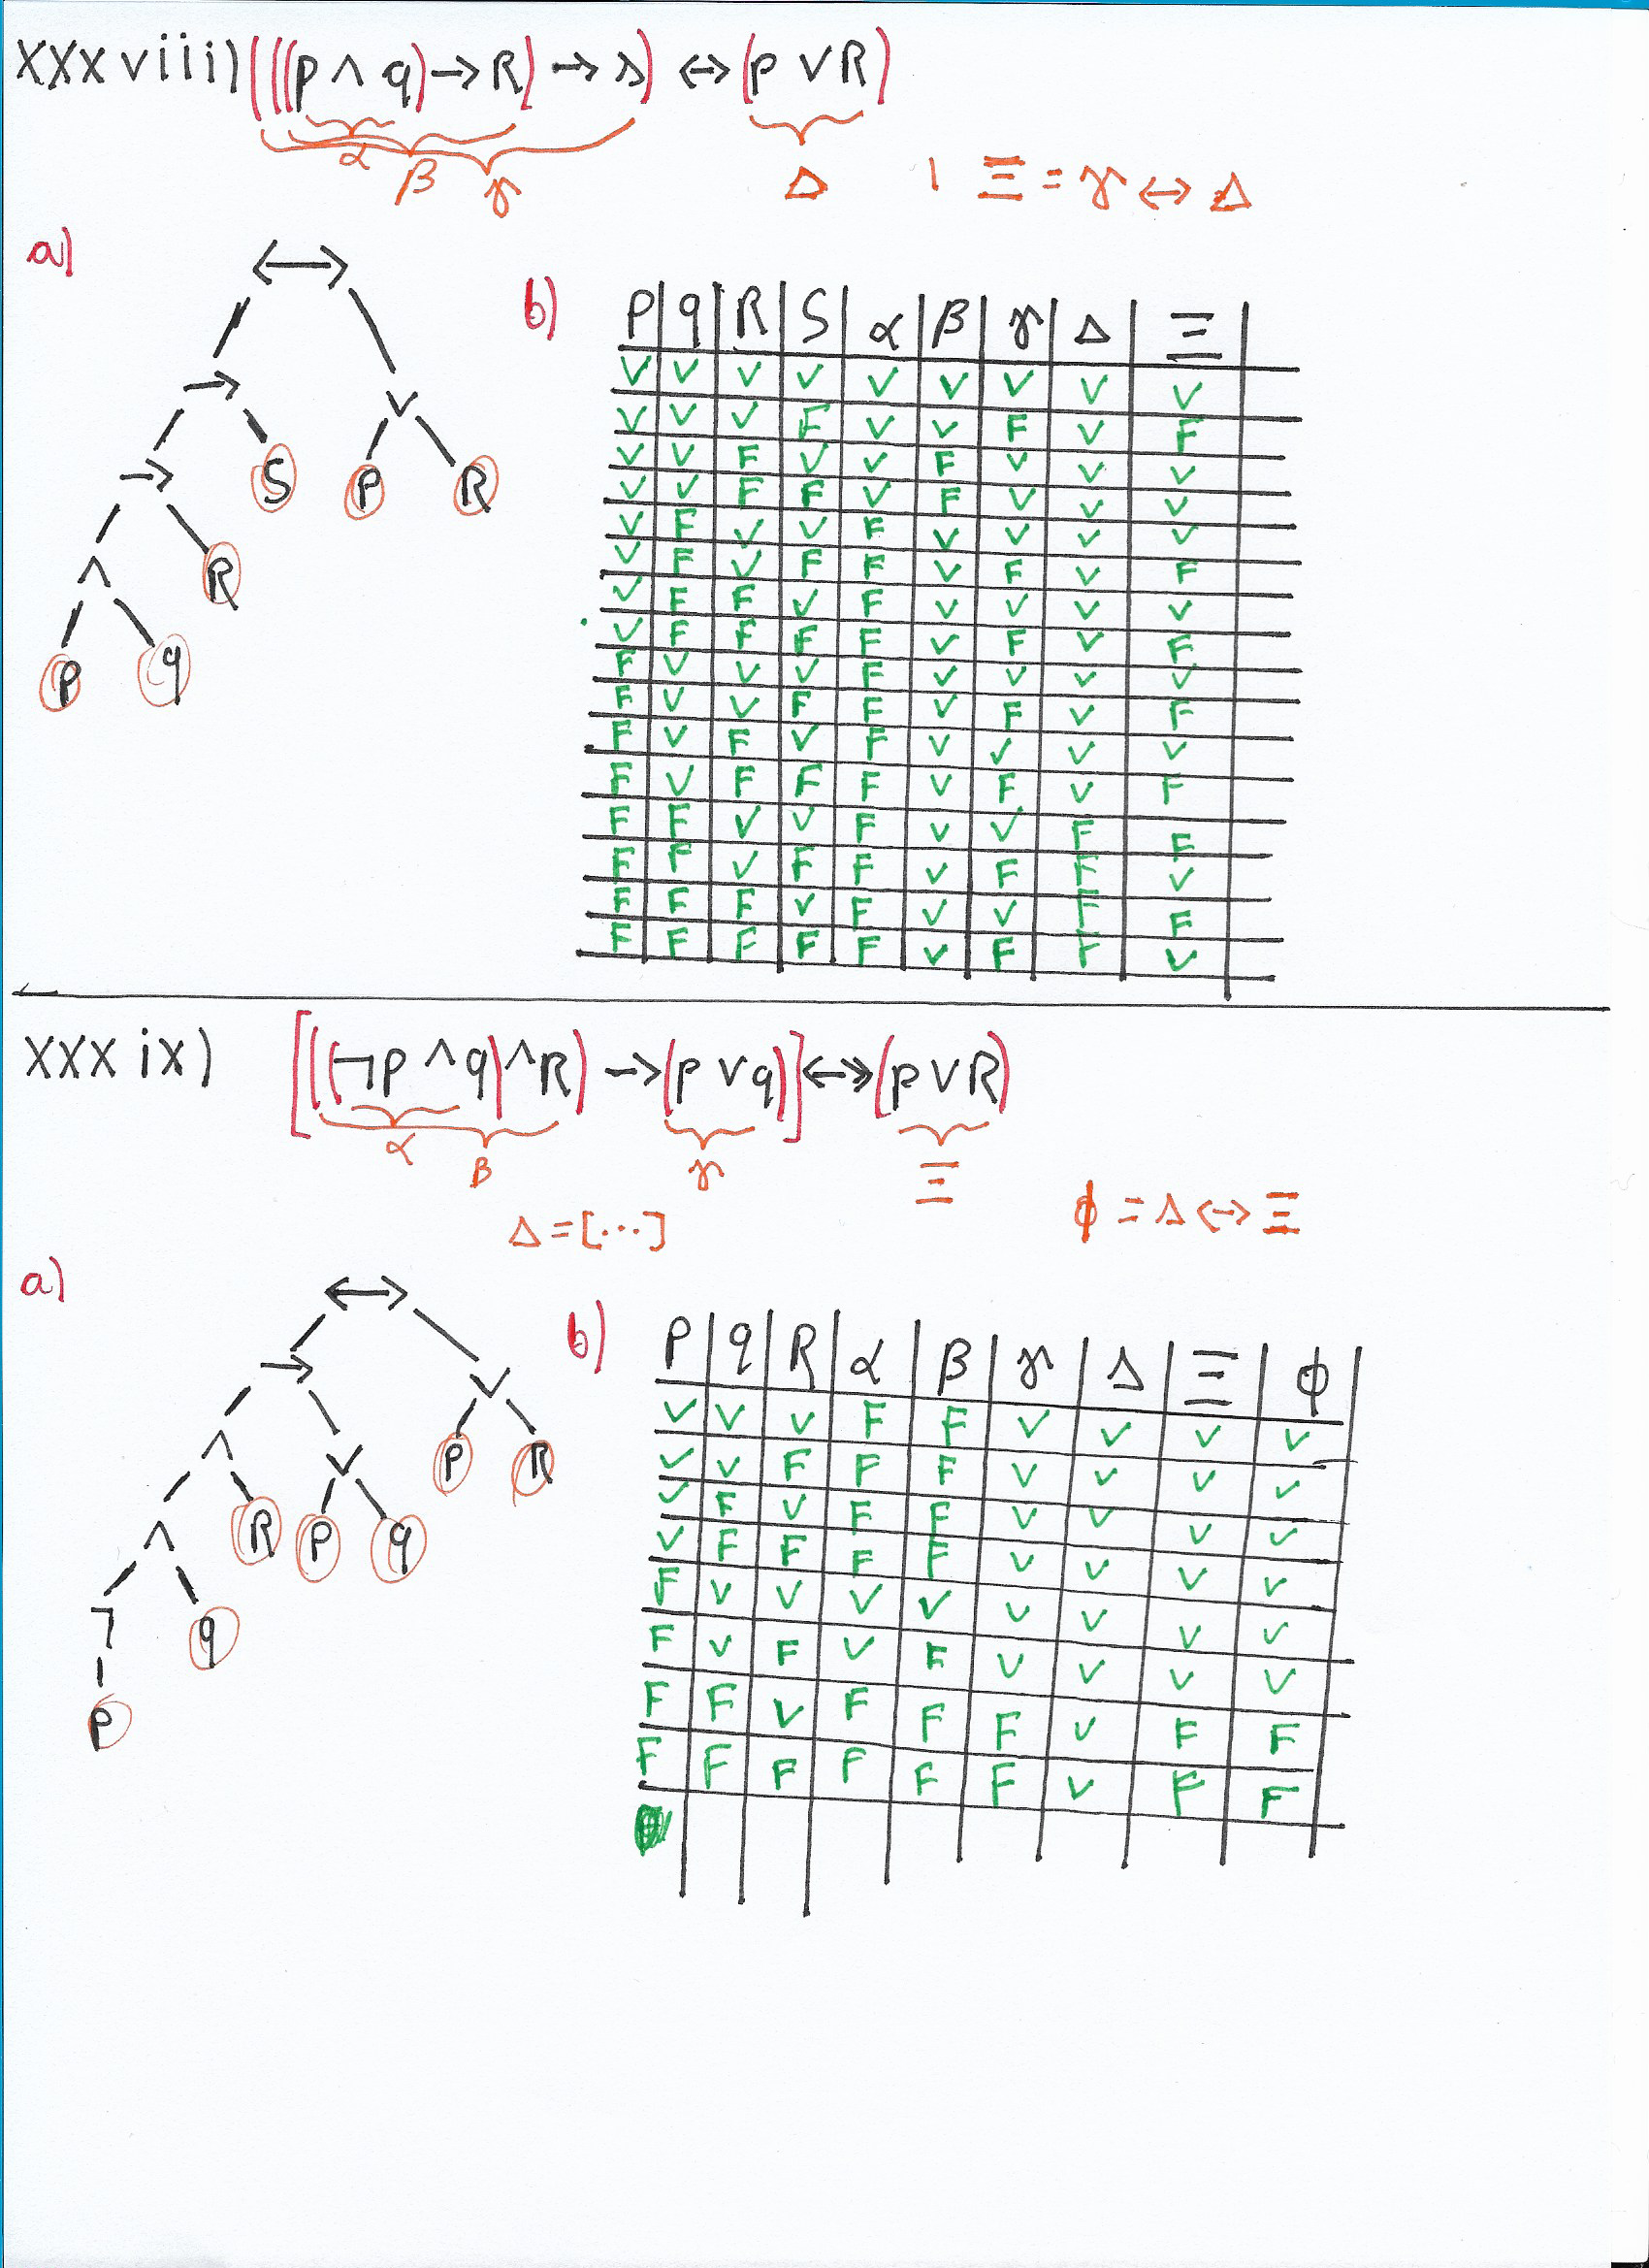 xxxviii) (((p ∧ q) → R) → s) ↔ (p ∨ R)
α
β γ Δ | Ξ = γ ↔ Δ
a)
↔
→ ∨
→ S P R
∧ R
P q
b)
P q R S α β γ Δ Ξ
V V V V V V V V V
V V V F V V F V F
V V F V V F V V V
V V F F V F V V V
V F V V F V V V V
V F V F F V F V F
V F F V F V V V V
V F F F F V F V F
F V V V F V V V V
F V V F F V F V F
F V F V F V V V V
F V F F F V F V F
F F V V F V V F F
F F V F F V F F V
F F F V F V V F F
F F F F F V F F V
xxxix) [((¬p ∧ q) ∧ R) → (p ∨ q)] ↔ (p ∨ R)
α β γ Ξ
Δ = [...] ϕ = Δ ↔ Ξ
a)
↔
→ ∨
∧ ∨ P R
∧ R P q
¬ q
P
b)
P q R α β γ Δ Ξ ϕ
V V V F F V V V V
V V F F F V V V V
V F V F F V V V V
V F F F F V V V V
F V V V V V V V V
F V F V F V V V V
F F V F F F V F F
F F F F F F V F F